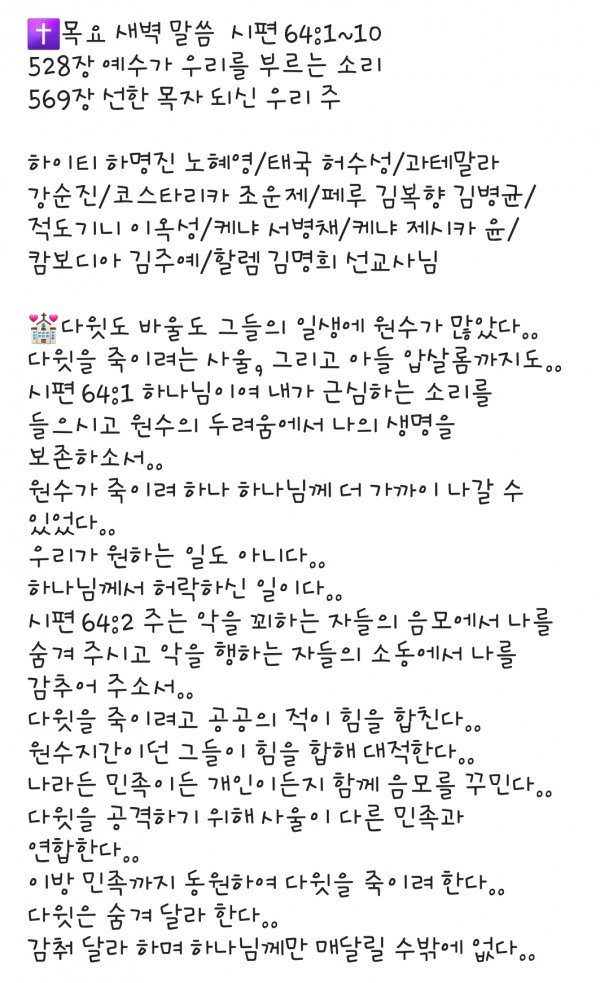 ✝️목요 새벽 말씀  시편 64:1~10
528장 예수가 우리를 부르는 소리
569장 선한 목자 되신 우리 주

하이티 하명진 노혜영/태국 허수성/과테말라
강순진/코스타리카 조운제/페루 김복향 김병균/
적도기니 이옥성/케냐 서병채/케냐 제시카 윤/
캄보디아 김주예/할렘 김명희 선교사님

💒다윗도 바울도 그들의 일생에 원수가 많았다..
다윗을 죽이려는 사울, 그리고 아들 압살롬까지도..
시편 64:1 하나님이여 내가 근심하는 소리를
들으시고 원수의 두려움에서 나의 생명을
보존하소서..
원수가 죽이려 하나 하나님께 더 가까이 나갈 수
있었다..
우리가 원하는 일도 아니다..
하나님께서 허락하신 일이다..
시편 64:2 주는 악을 꾀하는 자들의 음모에서 나를
숨겨 주시고 악을 행하는 자들의 소동에서 나를
감추어 주소서..
다윗을 죽이려고 공공의 적이 힘을 합친다..
원수지간이던 그들이 힘을 합해 대적한다..
나라든 민족이든 개인이든지 함께 음모를 꾸민다..
다윗을 공격하기 위해 사울이 다른 민족과
연합한다..
이방 민족까지 동원하여 다윗을 죽이려 한다..
다윗은 숨겨 달라 한다..
감춰 달라 하며 하나님께만 매달릴 수밖에 없다..